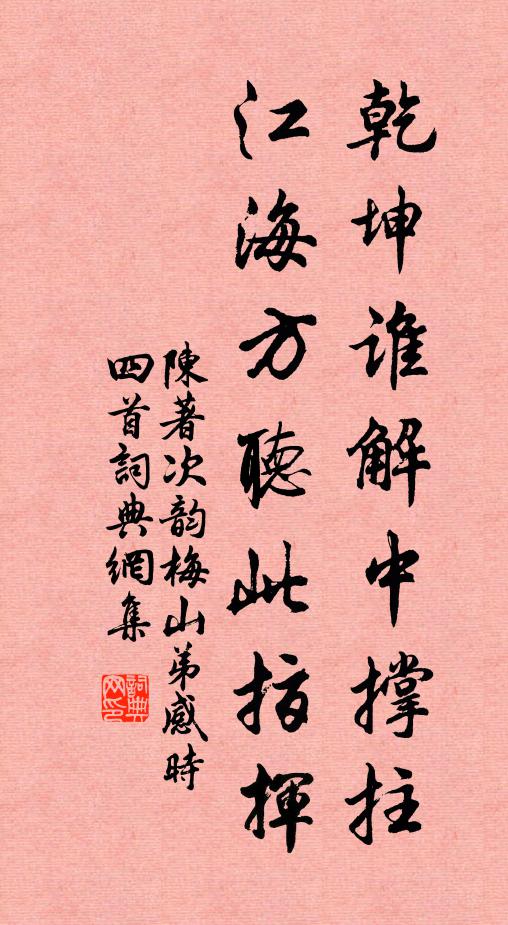 乾坤誰解中撐拄
江海方聽此指揮
陳著次韵梅山弟感時
四首詞典網集
詞典
网印